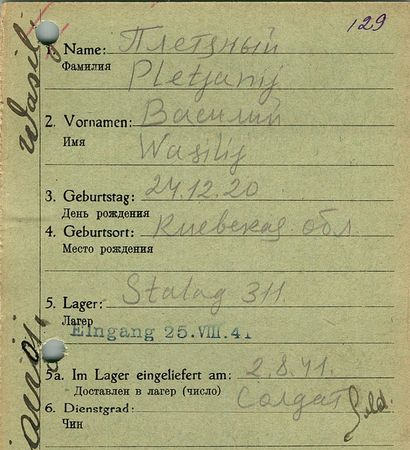 129
1. Name: Плетяный
Фамилия
Pletjanij
2. Vornamen: Василий
Имя
Wasilij
3. Geburtstag: 24.12.20
День рождения
4. Geburtsort: Киевская обл
Место рождения
5. Lager: Stalag 311.
Лагер
Eingang 25.VIII.41
5a. Im Lager eingeliefert am: 2.8.41.
Доставлен в лагер (число)
6. Dienstgrad: Солдат Sold.
Чин
Wasilij